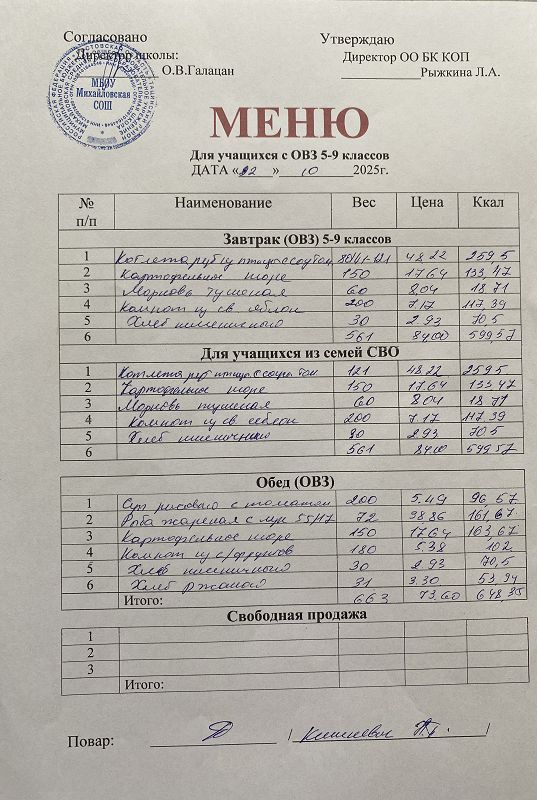 Согласовано Утверждаю
Директор школы: Директор ОО БК КОП
О.В.Галацан Рыжкина Л.А.
МБОУ
Михайловская
СОШ
МЕНЮ
Для учащихся с ОВЗ 5-9 классов
ДАТА «22» 10 2025г.
№ п/п Наименование Вес Цена Ккал
Завтрак (ОВЗ) 5-9 классов
1 Котлета руб из птицы с соусом 80/41-121 48.22 259.5
2 Картофельное пюре 150 17.64 133.47
3 Морковь тушеная 60 8.04 18.71
4 Компот из св. яблок 200 7.17 117.39
5 Хлеб пшеничный 30 2.93 70,5
6 561 84.00 599.57
Для учащихся из семей СВО
1 Котлета руб птицы с соусом 121 48.22 259.5
2 Картофельное пюре 150 17.64 133.47
3 Морковь тушеная 60 8.04 18.71
4 Компот из св яблок 200 7.17 117.39
5 Хлеб пшеничный 30 2.93 70.5
6 561 84.00 599.57
Обед (ОВЗ)
1 Суп рисовый с томатом 200 5.49 96,67
2 Рыба жареная с лук 55/17 72 38.86 161,67
3 Картофельное пюре 150 17.64 163,67
4 Компот из с/фруктов 180 5.38 102
5 Хлеб пшеничный 30 2.93 70,5
6 Хлеб ржаной 31 3.30 53.94
Итого: 663 73.60 648.35
Свободная продажа
1
2
3
Итого:
Повар: / /